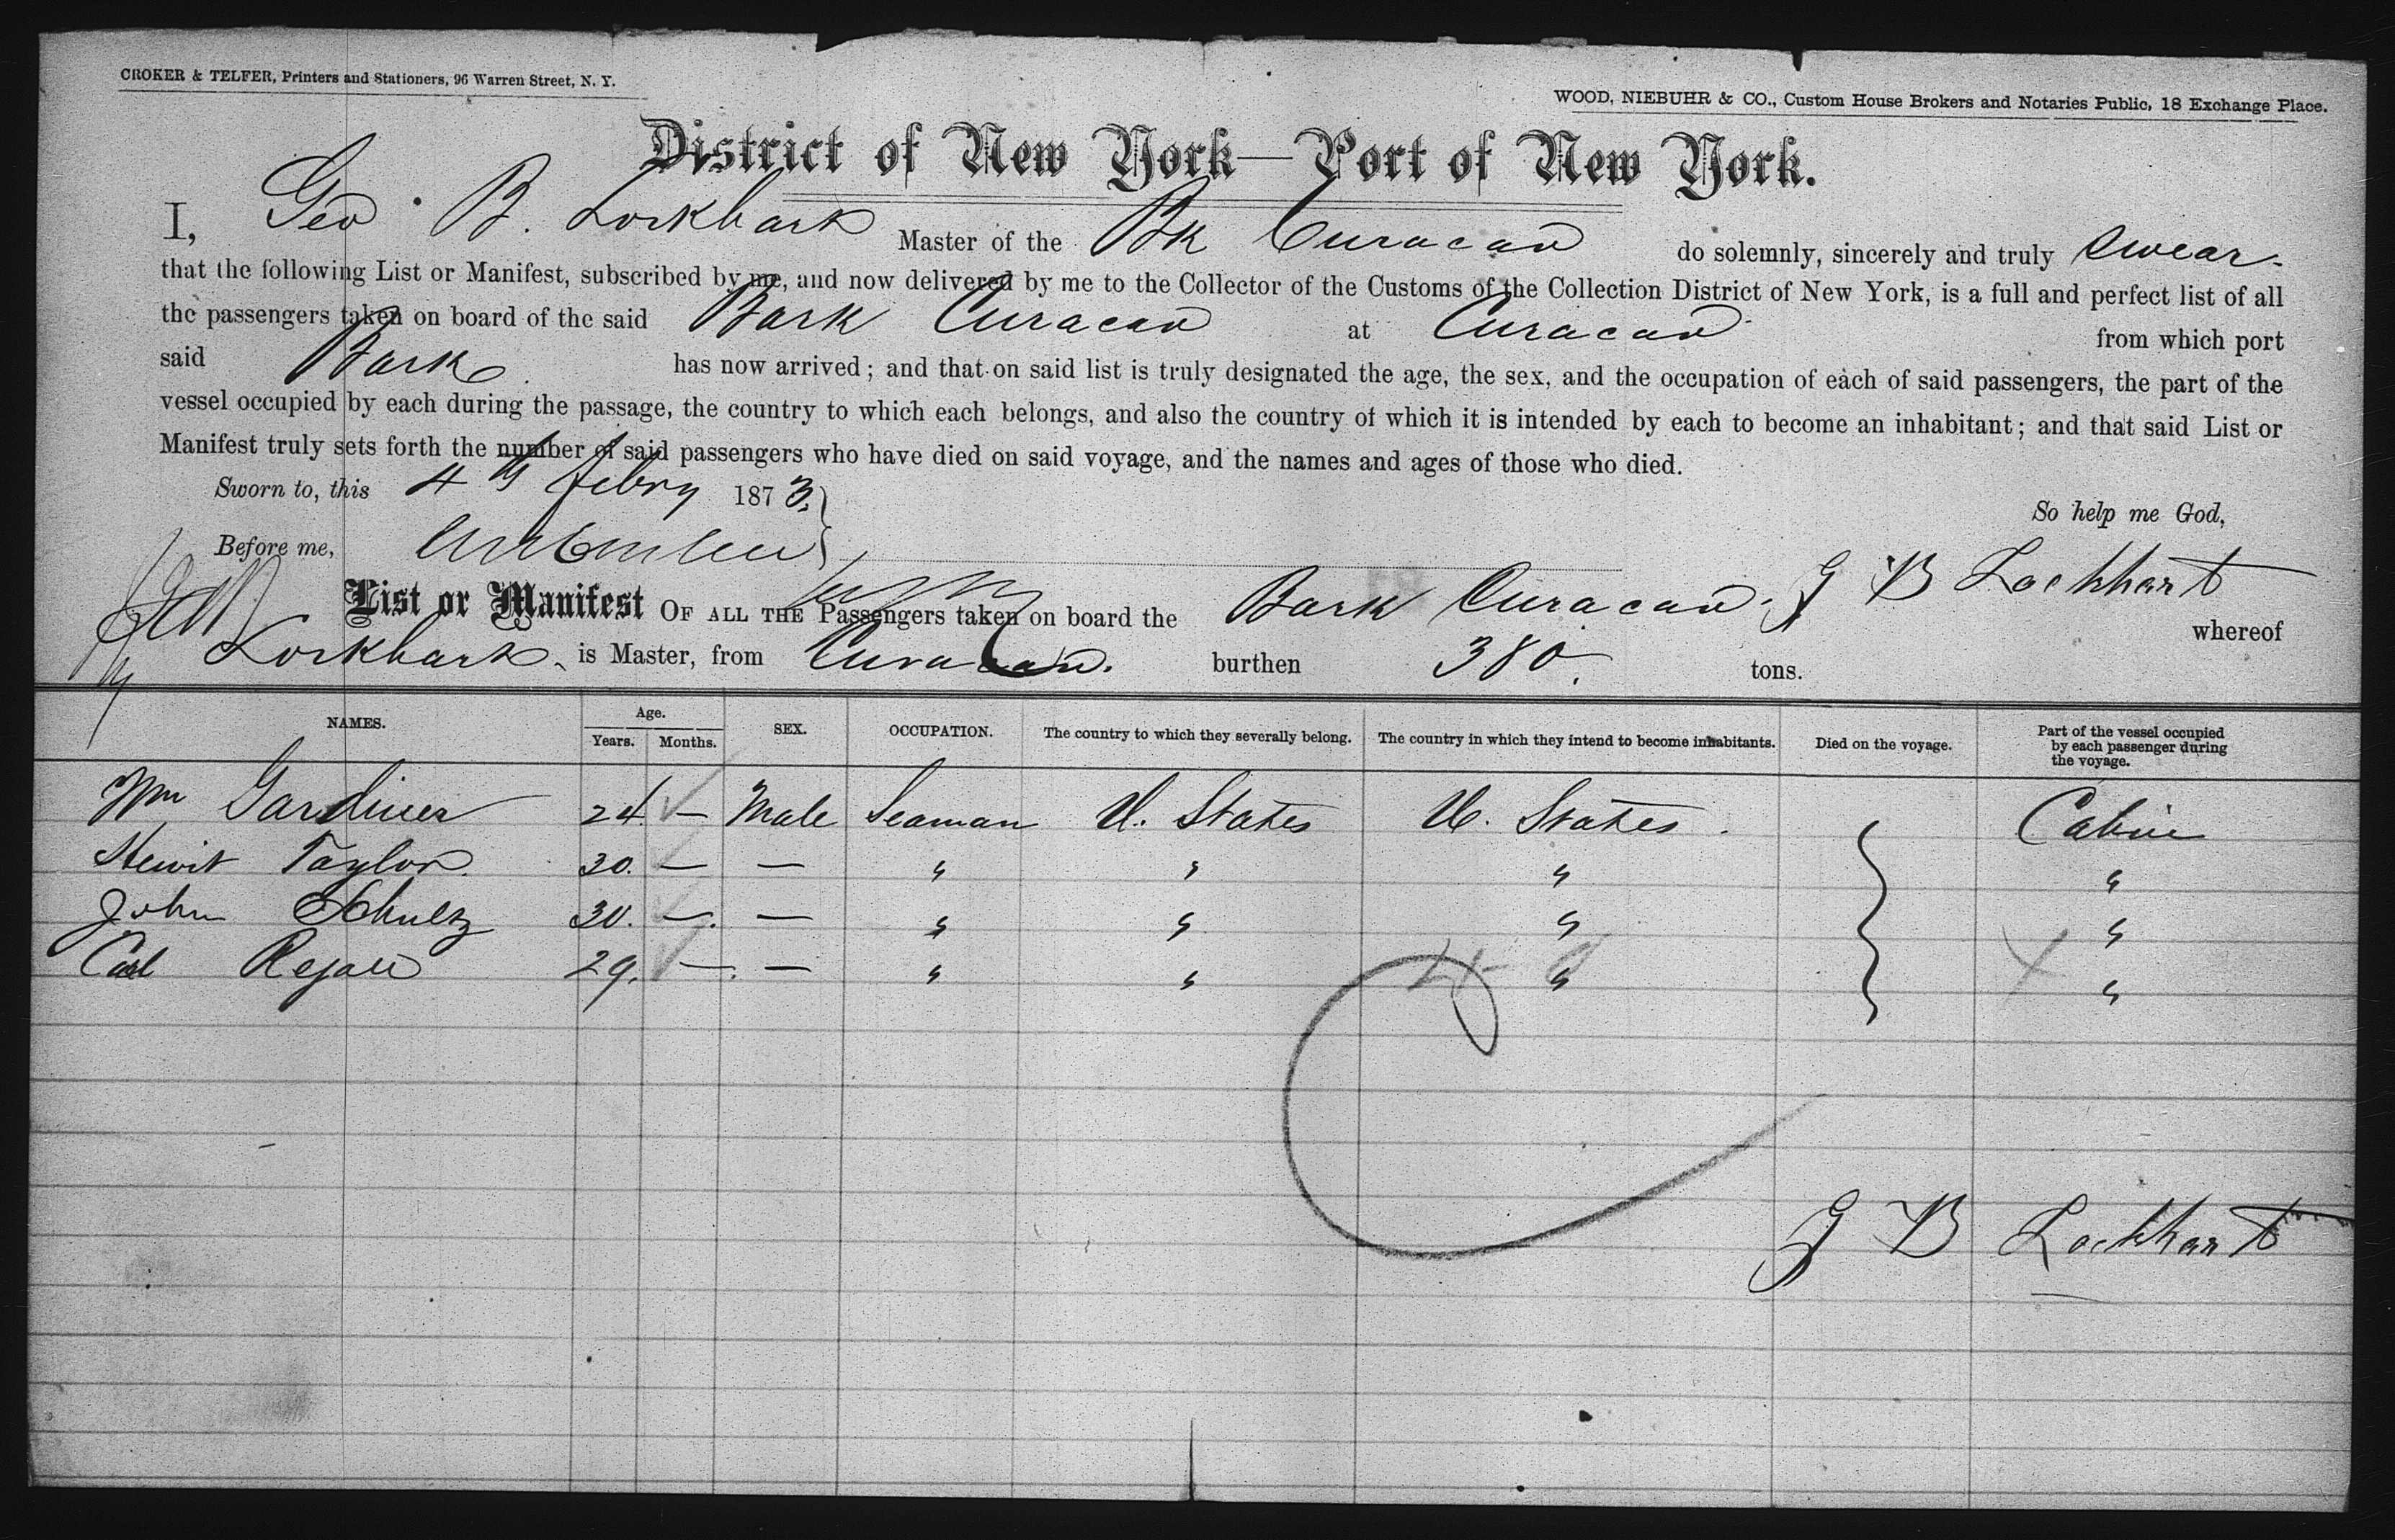 CROKER & TELFER, Printers and Stationers, 96 Warren Street, N. Y.
WOOD, NIEBUHR & CO., Custom House Brokers and Notaries Public, 18 Exchange Place.
District of New York—Port of New York.
I, Geo B. Lockhart Master of the Bk Curacao do solemnly, sincerely and truly swear
that the following List or Manifest, subscribed by me, and now delivered by me to the Collector of the Customs of the Collection District of New York, is a full and perfect list of all
the passengers taken on board of the said Bark Curacao at Curacao from which port
said Bark has now arrived; and that on said list is truly designated the age, the sex, and the occupation of each of said passengers, the part of the
vessel occupied by each during the passage, the country to which each belongs, and also the country of which it is intended by each to become an inhabitant; and that said List or
Manifest truly sets forth the number of said passengers who have died on said voyage, and the names and ages of those who died.
Sworn to, this 4th Febry 1873.
So help me God,
Before me,
G B Lockhart
List or Manifest OF ALL THE Passengers taken on board the Bark Curacao. whereof
Lockhart is Master, from Curacao. burthen 380. tons.
NAMES. Age. Years. Months. SEX. OCCUPATION. The country to which they severally belong. The country in which they intend to become inhabitants. Died on the voyage. Part of the vessel occupied by each passenger during the voyage.
Wm Gardiner 24. — Male Seaman U. States U. States. Cabin
Hewit Taylor. 30. — — " " " "
John Schultz 30. —. — " " " "
Carl 29. —. — " " " "
G B Lockhart